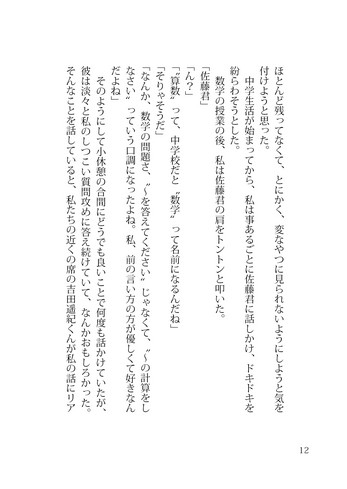 ほとんど残ってなくて、とにかく、変なやつに見られないようにしようと気を
付けようと思った。
　中学生活が始まってから、私は事あるごとに佐藤君に話しかけ、ドキドキを
紛らわそうとした。
　数学の授業の後、私は佐藤君の肩をトントンと叩いた。
「佐藤君」
「ん？」
「〝算数〟って、中学校だと〝数学〟って名前になるんだね」
「そりゃそうだ」
「なんか、数学の問題さ、〝〜を答えてください〟じゃなくて、〝〜の計算をし
なさい〟っていう口調になったよね。私、前の言い方の方が優しくて好きなん
だよね」
　そのようにして小休憩の合間にどうでも良いことで何度も話かけていたが、
彼は淡々と私のしつこい質問攻めに答え続けていて、なんかおもしろかった。
そんなことを話していると、私たちの近くの席の吉田遥紀くんが私の話にリア
12